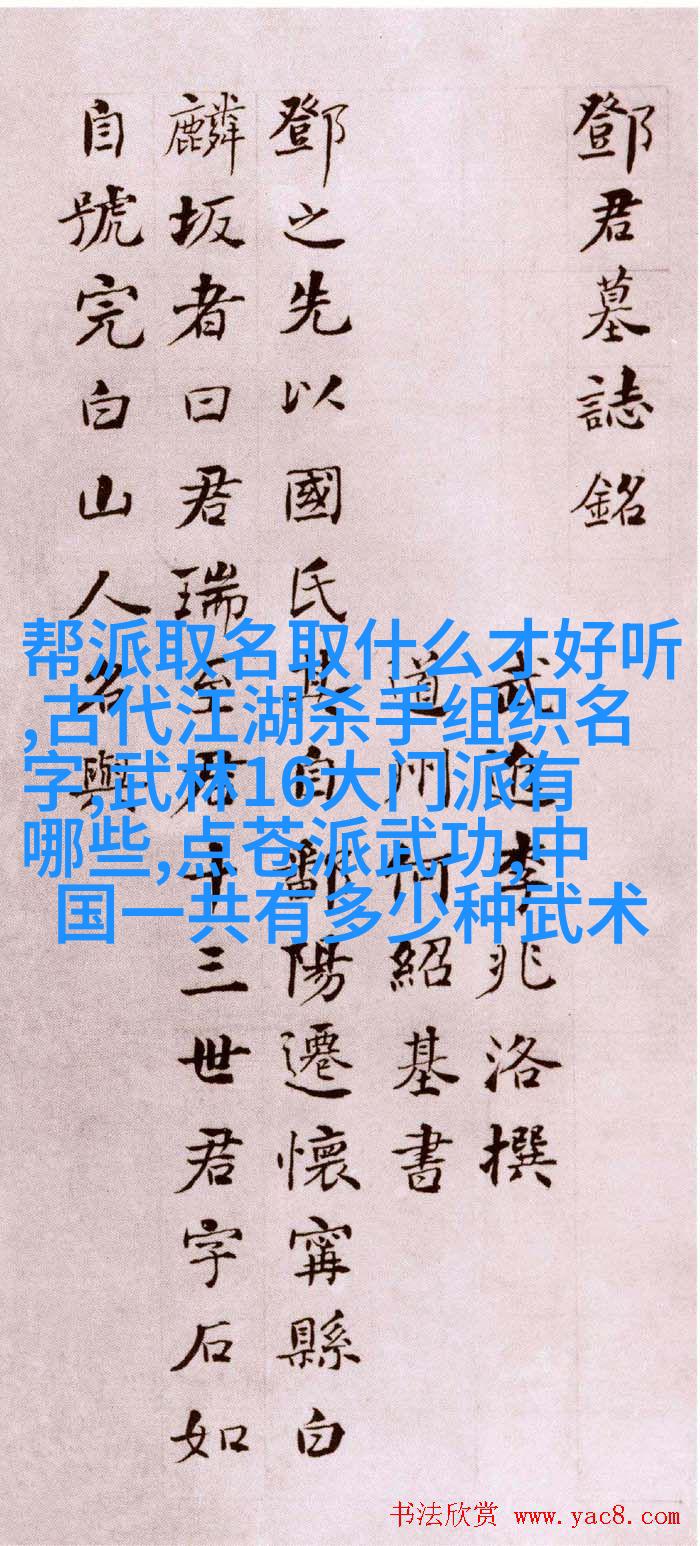 鄧君墓誌銘
武進李兆洛撰
道州何紹基書
鄧之先以國氏其自鄱陽遷懷甯縣白
麟坂者曰君瑞至君十三世君字石如
自號完白山人名與
帮派取名取什么才好听
,古代江湖杀手组织名
字,武林16大门派有
哪些,点苍派武功,中
国一共有多少种武术
书法欣赏 www.yac8.com